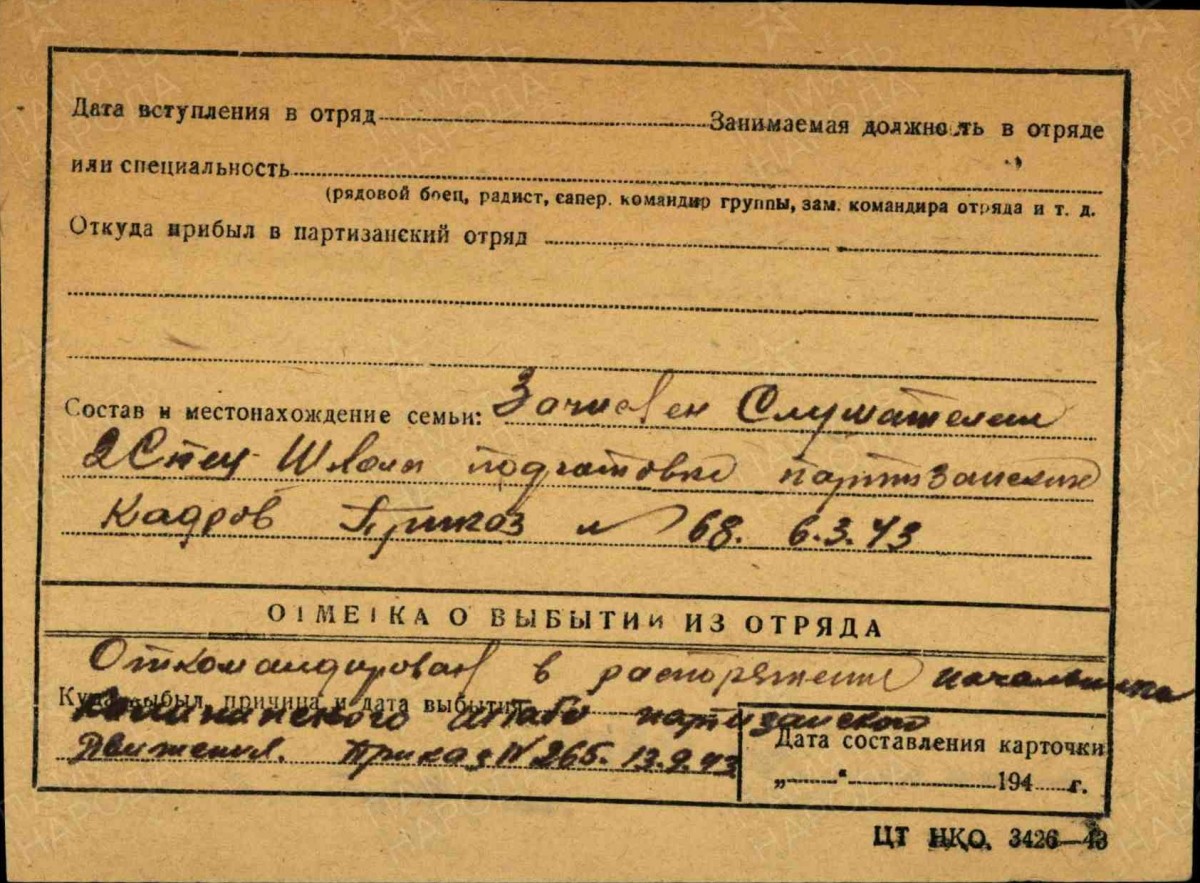 Дата вступления в отряд
Занимаемая должность в отряде
или специальность
(рядовой боец, радист, сапер, командир группы, зам. командира отряда и т. д.
Откуда прибыл в партизанский отряд
Состав и местонахождение семьи: Зачислен Слушателем
2 Спец Школы подготовки партизанских
Кадров Приказ № 68. 6.3.43
ОТМЕТКА О ВЫБЫТИИ ИЗ ОТРЯДА
Откомандирован в распоряжение начальника
Куда выбыл, причина и дата выбытия
Калининского штаба партизанского
Движения. Приказ № 265. 13.9.43
Дата составления карточки
„ “ 194 г.
ЦТ НКО. 3426—43
ПАМЯТЬ НАРОДА